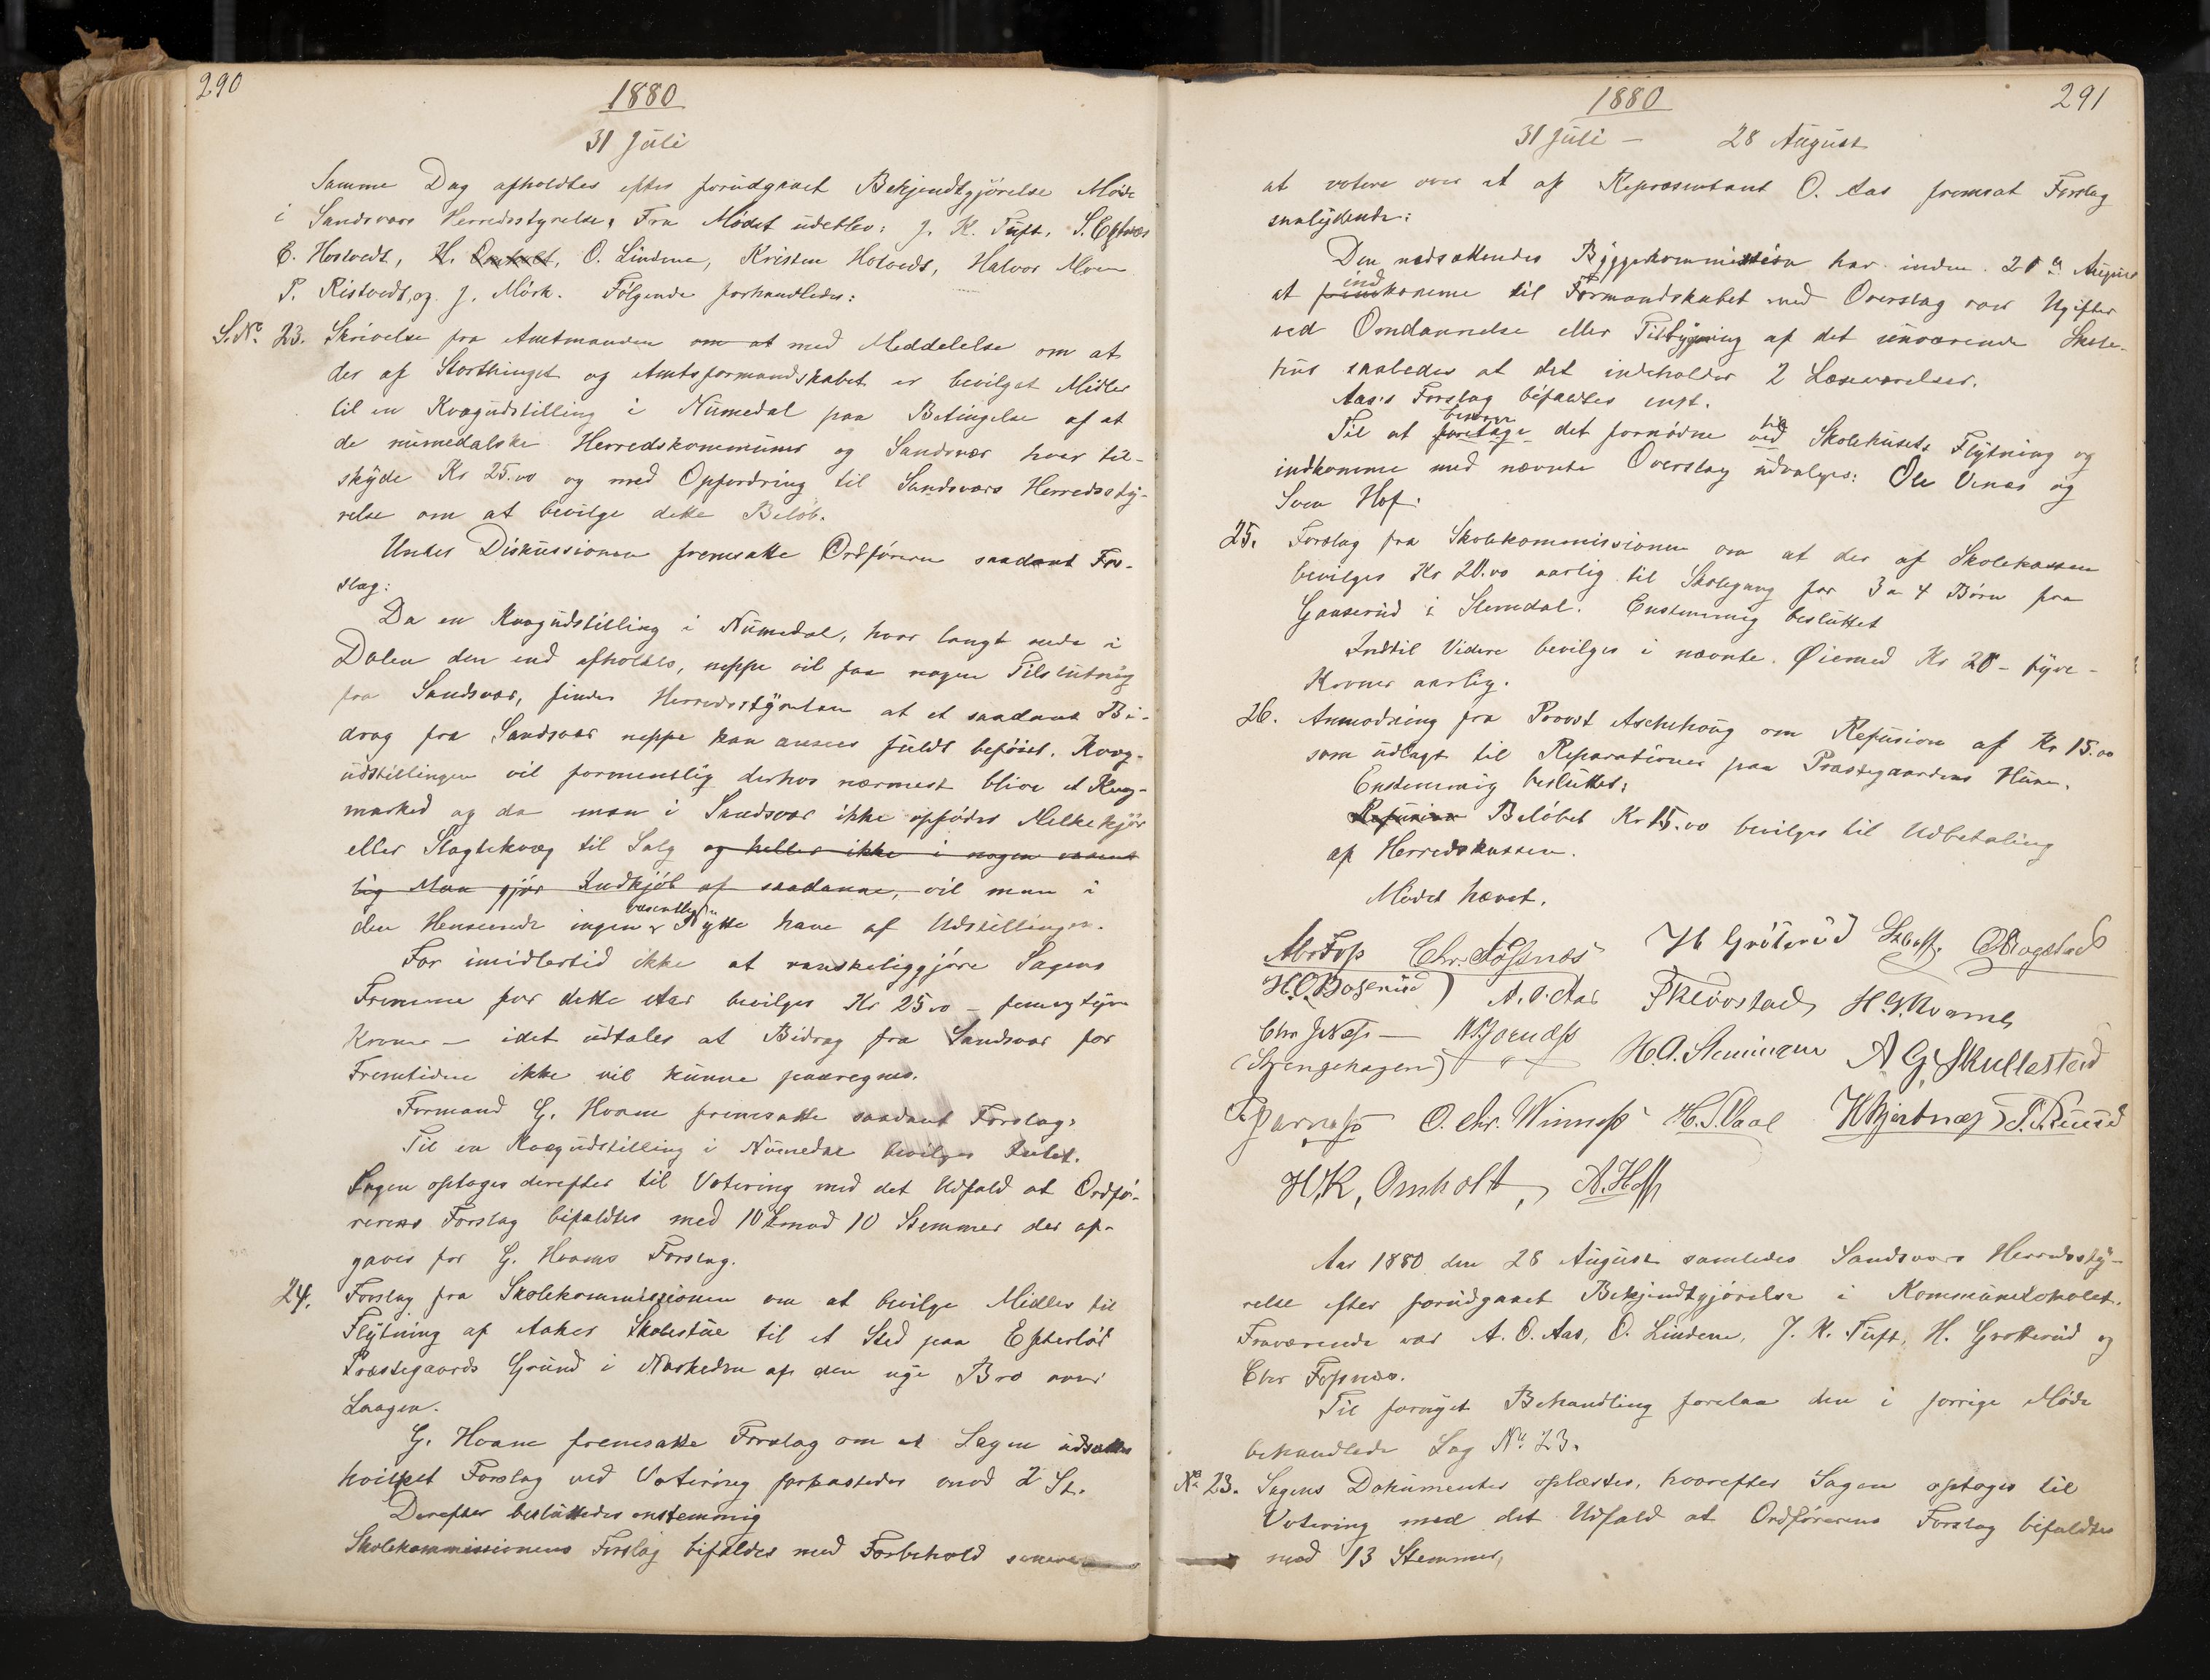 290
1880
31 Juli
Samme Dag afholdtes efter forudgaaet Bekjendtgjørelse Møde
i Sandsvær Herredsstyrelse. Fra Mødet udeblev: J. K. Tuft, S.
C. Hostvedt, H. Omholt, O. Lindem, Kristen Hostvedt, Halvor Moen
P. Ristvedt, og J. Mörk. Følgende forhandledes:
S. No. 23. Skrivelse fra Amtmanden om at med Meddelelse om at
der af Storthinget og Amtsformandskabet er bevilget Midler
til en Kvægudstilling i Numedal paa Betingelse af at
de numedalske Herredskommuner og Sandsvær hver til-
skyde Kr 25.00 og med Opfordring til Sandsværs Herredssty-
relse om at bevilge dette Beløb.
Under Diskussionen fremsatte Ordføreren saadant For-
slag:
Da en Kvægudstilling i Numedal, hvor langt nede i
Dalen den end afholdes, neppe vil faa nogen Tilslutning
fra Sandsvær, finder Herredsstyrelsen at et saadant Bi-
drag fra Sandsvær neppe kan ansees fuldt beføiet. Kvæg-
udstillingen vil formentlig derhos nærmest blive et Kvæg-
marked og da man i Sandsvær ikke opføder Melkekjør
eller Slagtekvæg til Salg og heller ikke i nogen væsent
lig Mon gjør Indkjøb af saadanne, vil man i
den Henseende ingen væsentlig Nytte have af Udstillingen.
For imidlertid ikke at vanskeliggjøre Sagens
Fremme for dette Aar bevilges Kr 25.00 – femogtyve
Kroner – idet udtales at Bidrag fra Sandsvær for
Fremtiden ikke vil kunne paaregnes.
Formand G. Hvam fremsatte saadant Forslag:
Til en Kvægudstilling i Numedal bevilges Intet.
Sagen optoges derefter til Votering med det Udfald at Ordfø-
rerens Forslag bifaldtes med 10 mod 10 Stemmer der af-
gaves for G. Hvams Forslag.
24. Forslag fra Skolekommissionen om at bevilge Midler til
Flytning af Aaker Skolestue til et Sted paa Efterløt
Præstegaards Grund i Nærheden af den nye Bro over
Laagen.
G. Hvam fremsatte Forslag om at Sagen udsættes
hvilket Forslag ved Votering forkastedes mod 2 St.
Derefter besluttedes enstemmig
Skolekommissionens Forslag bifaldes med Forbehold senere
291
1880
31 Juli – 28 August
at votere over et af Repræsentant O. Aas fremsat Forslag
saalydende:
Den nedsættendes Byggekommission har inden 21 August
at ind fremkomme til Formandskabet med Overslag over Ugifter
ved Omdannelse eller Tilbygning af det nuværende Skole-
hus saaledes at det indeholder 2 Læseværelser.
Aas's Forslag bifaldtes enst.
Til at foretage besørge det fornødne ved til Skolehusets Flytning og
indkomme med nævnte Overslag udvalges: Ole Venaas og
Sven Hof.
25. Forslag fra Skolekommissionen om at der af Skolekassen
bevilges Kr 20.00 aarlig til Skolegang for 3 a 4 Børn fra
Gauserud i Slemdal. Enstemmig besluttet
Indtil Videre bevilges i nævnte Øiemed Kr 20 – tyve –
Kroner aarlig.
26. Anmodning fra Provst Aschehoug om Refusion af Kr 15.00
som udlagt til Reparationer paa Præstegaardens Huse.
Enstemmig besluttet:
Refusion Beløbet Kr 15.00 bevilges til Udbetaling
af Herredskassen.
Mødet hævet.
Abr Foss Chr. Fossnæs H Grøterud
A. O. Aas H. G. Kvarnes
A G Skullestad
O. Chr. Winness
H. K. Omholt, A. Hoff
Aar 1880 den 28 August samledes Sandsværs Herredssty-
relse efter forudgaaet Bekjendtgjørelse i Kommunelokalet.
Fraværende var A. O. Aas, O. Lindem, J. K. Tuft, H. Grøtterud og
Chr Fossnæs.
Til fornyet Behandling forelaa den i forrige Møde
behandlede Sag No 23.
No 23. Sagens Dokumenter oplæstes, hvorefter Sagen optoges til
Votering med det Udfald at Ordførerens Forslag bifaldtes
mod 13 Stemmer,